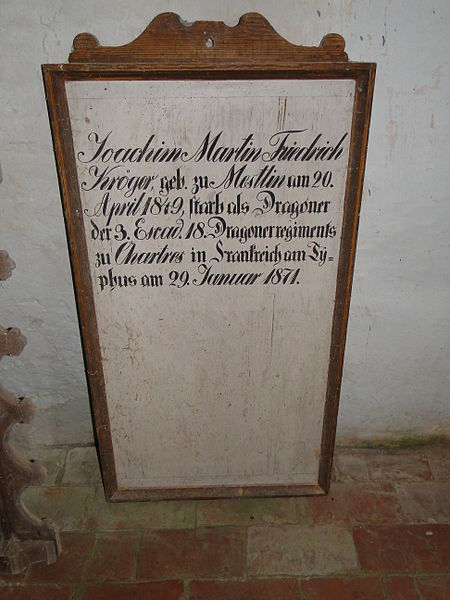 Joachim Martin Friedrich
Kröger, geb. zu Mestlin am 20.
April 1849, starb als Dragoner
der 3. Escad. 18. Dragonerregiments
zu Chartres in Frankreich am Ty=
phus am 29. Januar 1871.